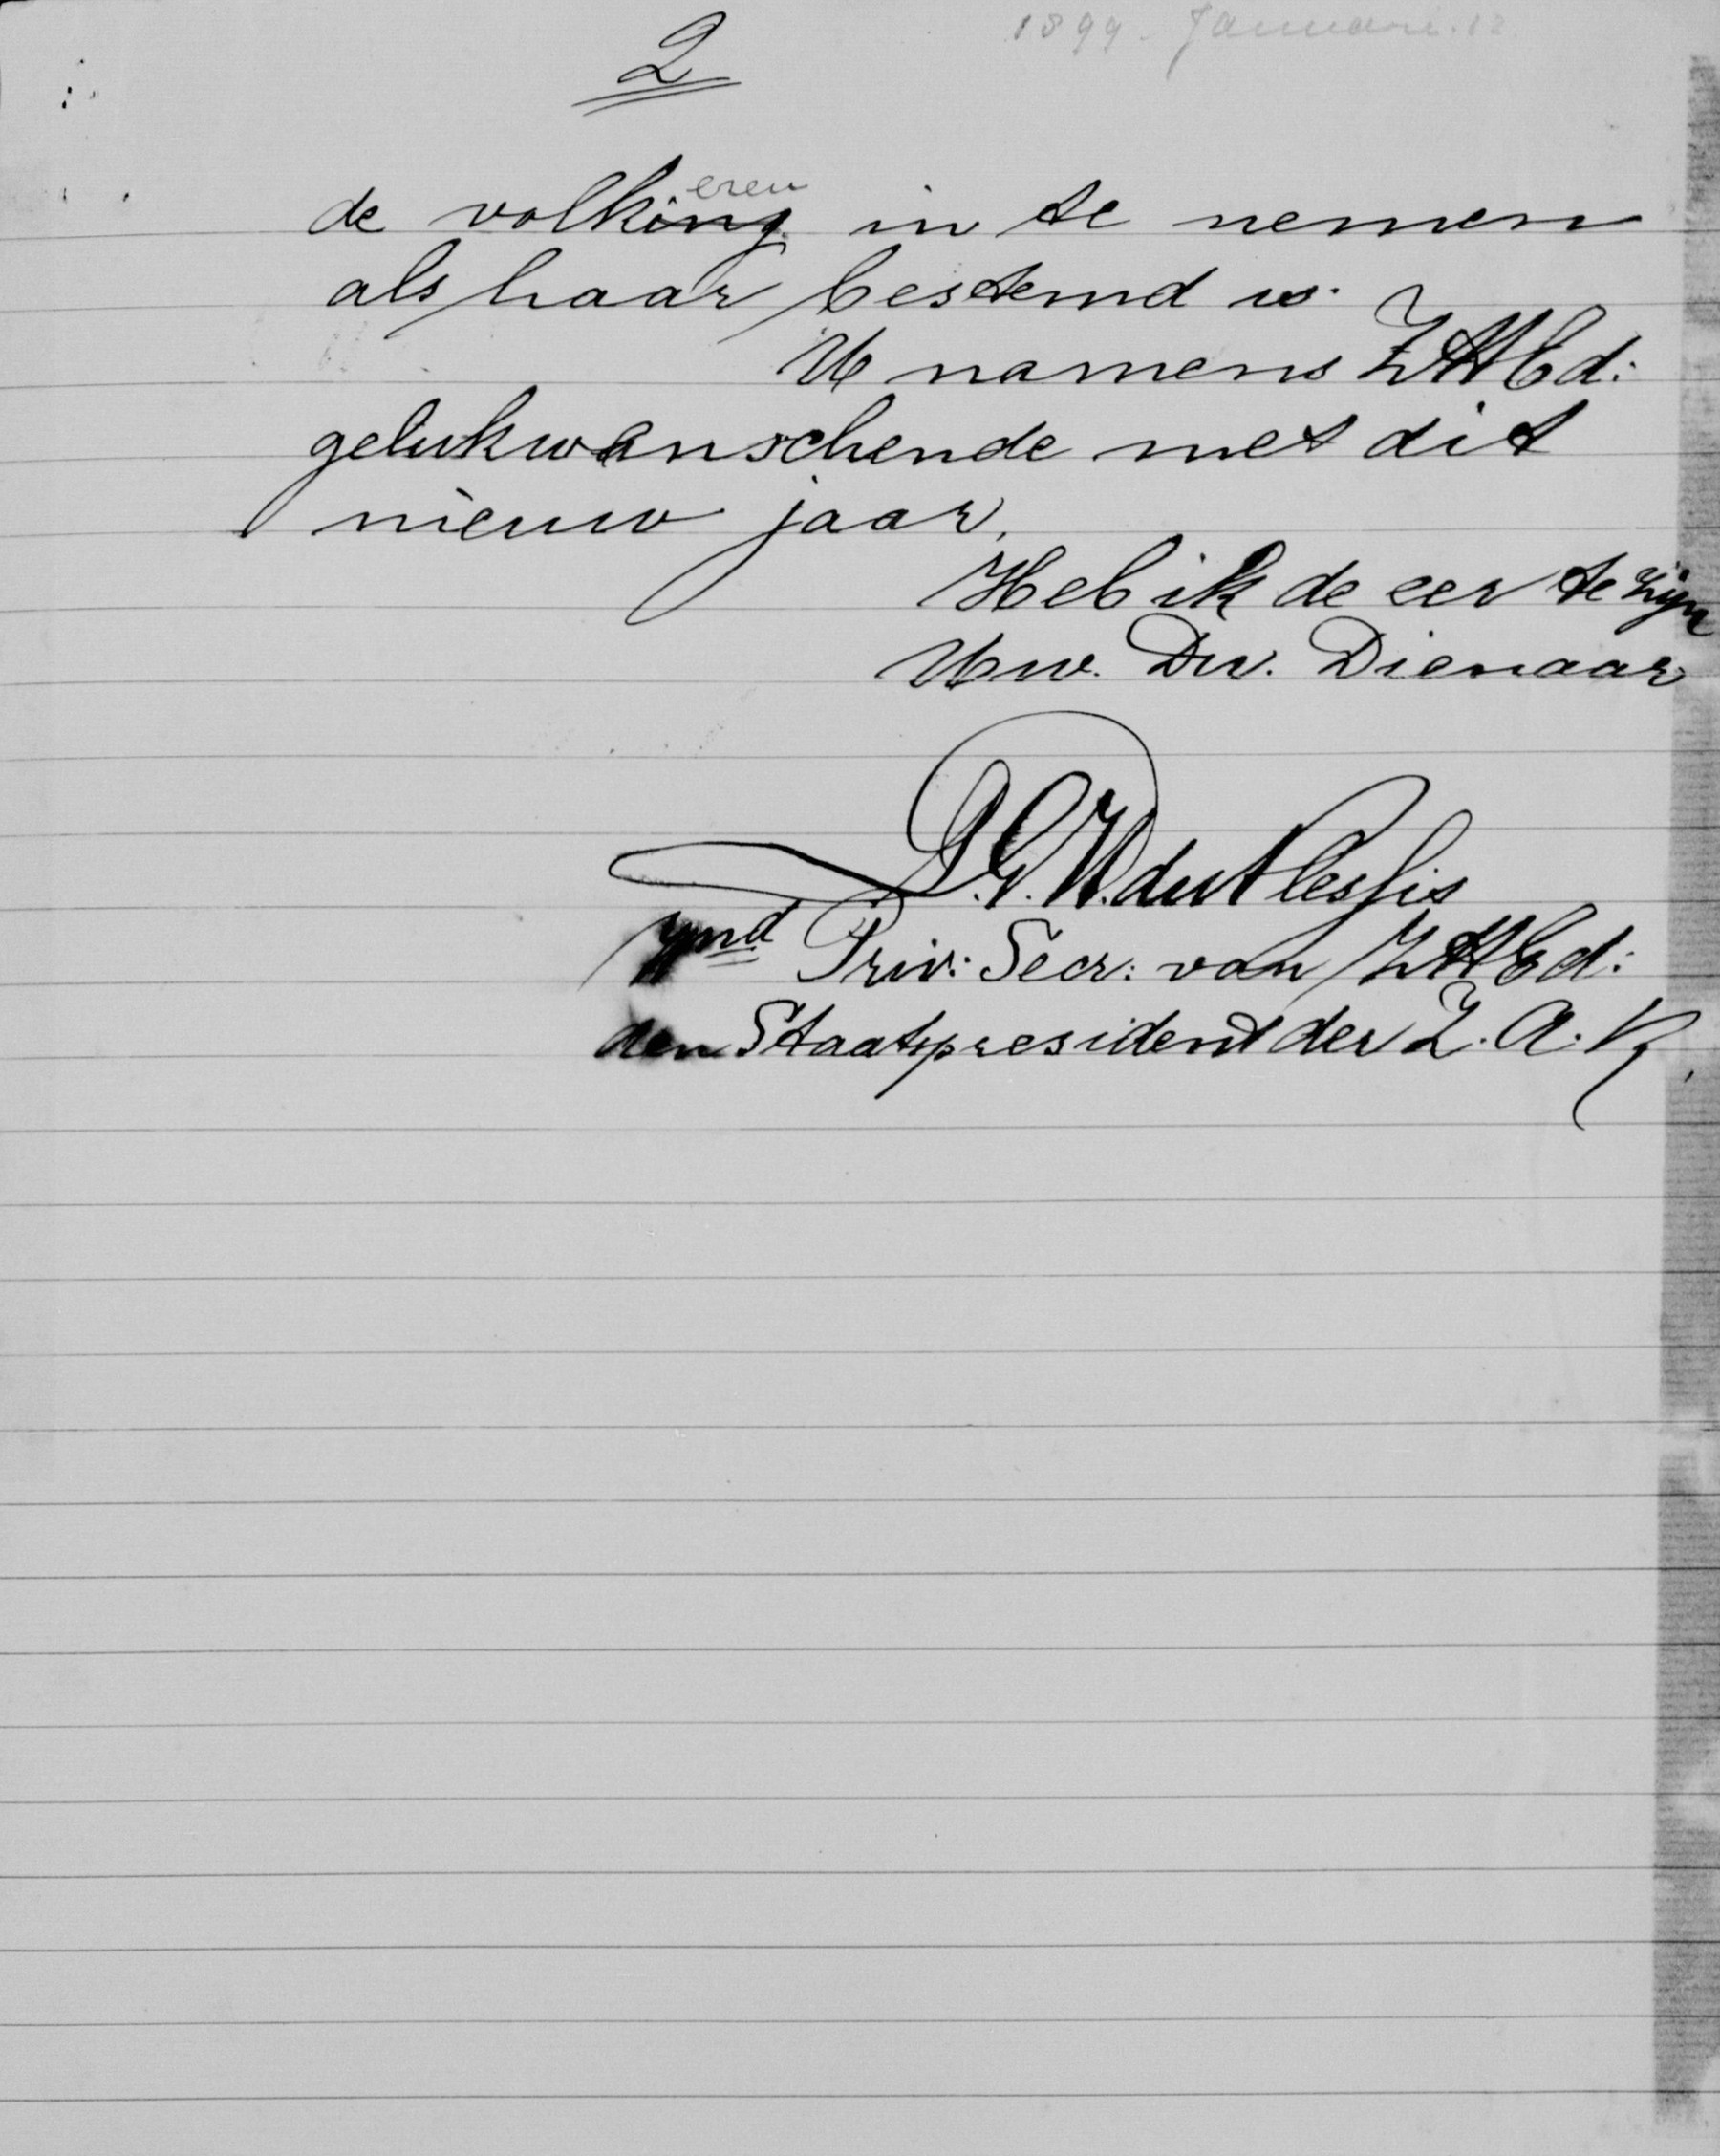 1899. Januari. 12.
2
de volkeren in te nemen
als haar bestemd is.
U namens ZHEd:
gelukwenschende met dit
nieuw jaar,
Heb ik de eer te zijn
Uw. Dw. Dienaar
du Plessis
Priv: Secr: van ZHEd:
den Staatspresident der Z. A. R,